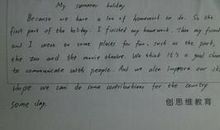 My summer holiday
Because we have a lot of homework to do. So the
first part of the holiday. I finished my homework. Then my friend
and I went to some places for fun, such as the park,
the zoo and the movie theatre. We think it's a good chance
to communicate with people. And we also improve our
hope we can do some contributions for the country
some day.
创思维教育